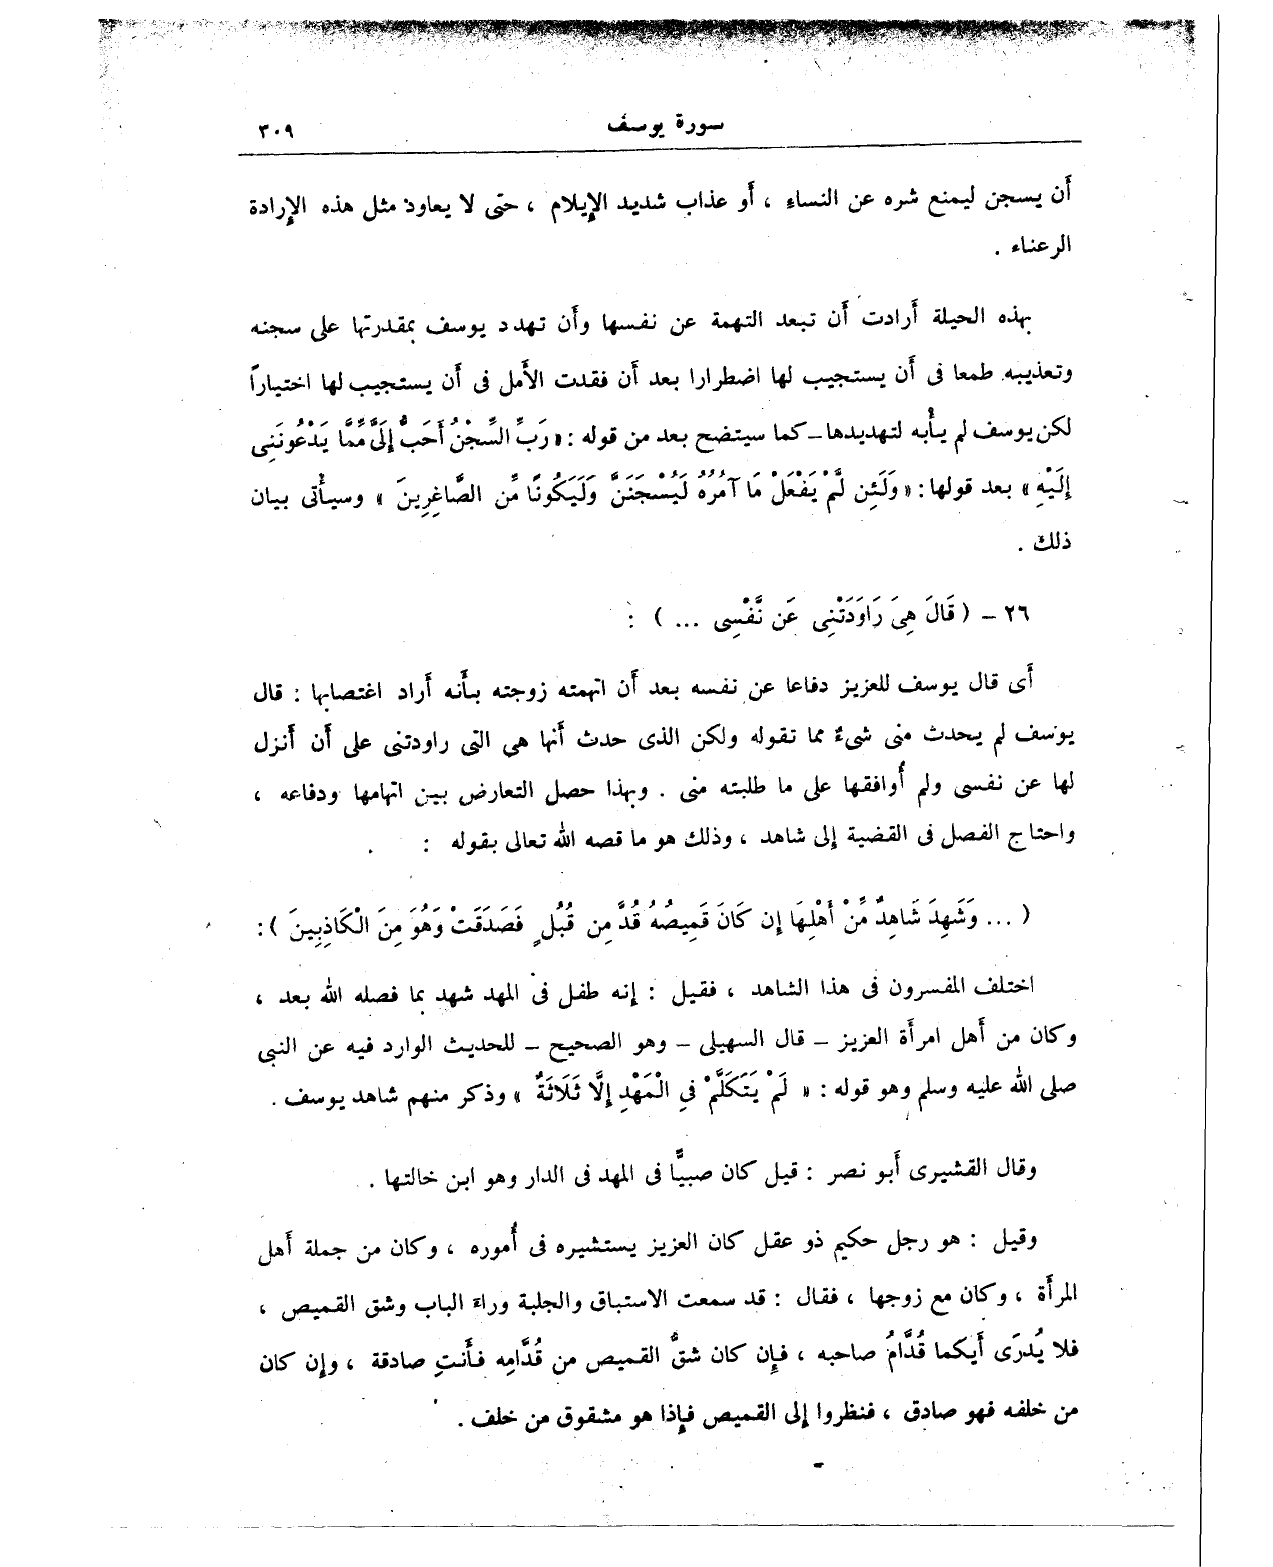 سورة يوسف ٣٠٩
أن يسجن ليمنع شره عن النساء ، أو عذاب شديد الإيلام ، حتى لا يعاود مثل هذه الإرادة
الرعناء .
بهذه الحيلة أرادت أن تبعد التهمة عن نفسها وأن تهدد يوسف بمقدرتها على سجنه
وتعذيبه طمعا فى أن يستجيب لها اضطرارا بعد أن فقدت الأمل فى أن يستجيب لها اختياراً
لكن يوسف لم يأبه لتهديدها – كما سيتضح بعد من قوله : « رَبِّ السِّجْنُ أَحَبُّ إِلَىَّ مِمَّا يَدْعُونَنِى
إِلَيْهِ » بعد قولها : « وَلَئِن لَّمْ يَفْعَلْ مَا آمُرُهُ لَيُسْجَنَنَّ وَلَيَكُونًا مِّنَ الصَّاغِرِينَ » وسيأتى بيان
ذلك .
٢٦ – ( قَالَ هِىَ رَاوَدَتْنِى عَن نَّفْسِى ... ) :
أى قال يوسف للعزيز دفاعا عن نفسه بعد أن اتهمته زوجته بأنه أراد اغتصابها : قال
يوسف لم يحدث منى شىءٌ مما تقوله ولكن الذى حدث أنها هى التى راودتنى على أن أنزل
لها عن نفسى ولم أوافقها على ما طلبته منى . وبهذا حصل التعارض بين اتهامها ودفاعه ،
واحتاج الفصل فى القضية إلى شاهد ، وذلك هو ما قصه الله تعالى بقوله :
( ... وَشَهِدَ شَاهِدٌ مِّنْ أَهْلِهَا إِن كَانَ قَمِيصُهُ قُدَّ مِن قُبُلٍ فَصَدَقَتْ وَهُوَ مِنَ الْكَاذِبِينَ ) :
اختلف المفسرون فى هذا الشاهد ، فقيل : إنه طفل فى المهد شهد بما فصله الله بعد ،
وكان من أهل امرأة العزيز – قال السهيلى – وهو الصحيح – للحديث الوارد فيه عن النبى
صلى الله عليه وسلم وهو قوله : « لَمْ يَتَكَلَّمْ فِى الْمَهْدِ إِلَّا ثَلَاثَةٌ » وذكر منهم شاهد يوسف .
وقال القشيرى أبو نصر : قيل كان صبيًّا فى المهد فى الدار وهو ابن خالتها .
وقيل : هو رجل حكيم ذو عقل كان العزيز يستشيره فى أُموره ، وكان من جملة أهل
المرأة ، وكان مع زوجها ، فقال : قد سمعت الاستباق والجلبة وراءَ الباب وشق القميص ،
فلا يُدرَى أيكما قُدَّامُ صاحبه ، فإن كان شقُّ القميص من قُدَّامِه فأنتِ صادقة ، وإن كان
من خلفه فهو صادق ، فنظروا إلى القميص فإذا هو مشقوق من خلف .